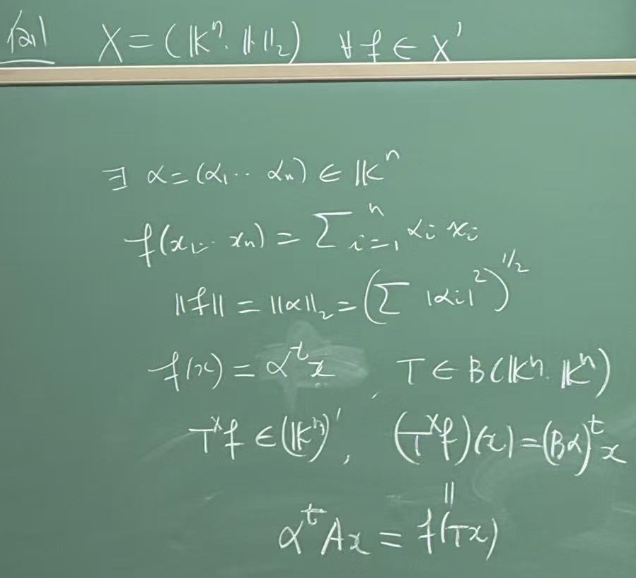 例 X = (𝕂ⁿ, ‖ ‖₂) ∀f ∈ X'
∃ α = (α₁ ⋯ αₙ) ∈ 𝕂ⁿ
f(x₁ ⋯ xₙ) = Σⁿᵢ₌₁ αᵢ xᵢ
‖f‖ = ‖α‖₂ = (Σ |αᵢ|²)^{1/2}
f(x) = αᵗx, T ∈ B(𝕂ⁿ, 𝕂ⁿ)
Tˣf ∈ (𝕂ⁿ)', (Tˣf)(x) = (Bα)ᵗx
||
αᵗAx = f(Tx)